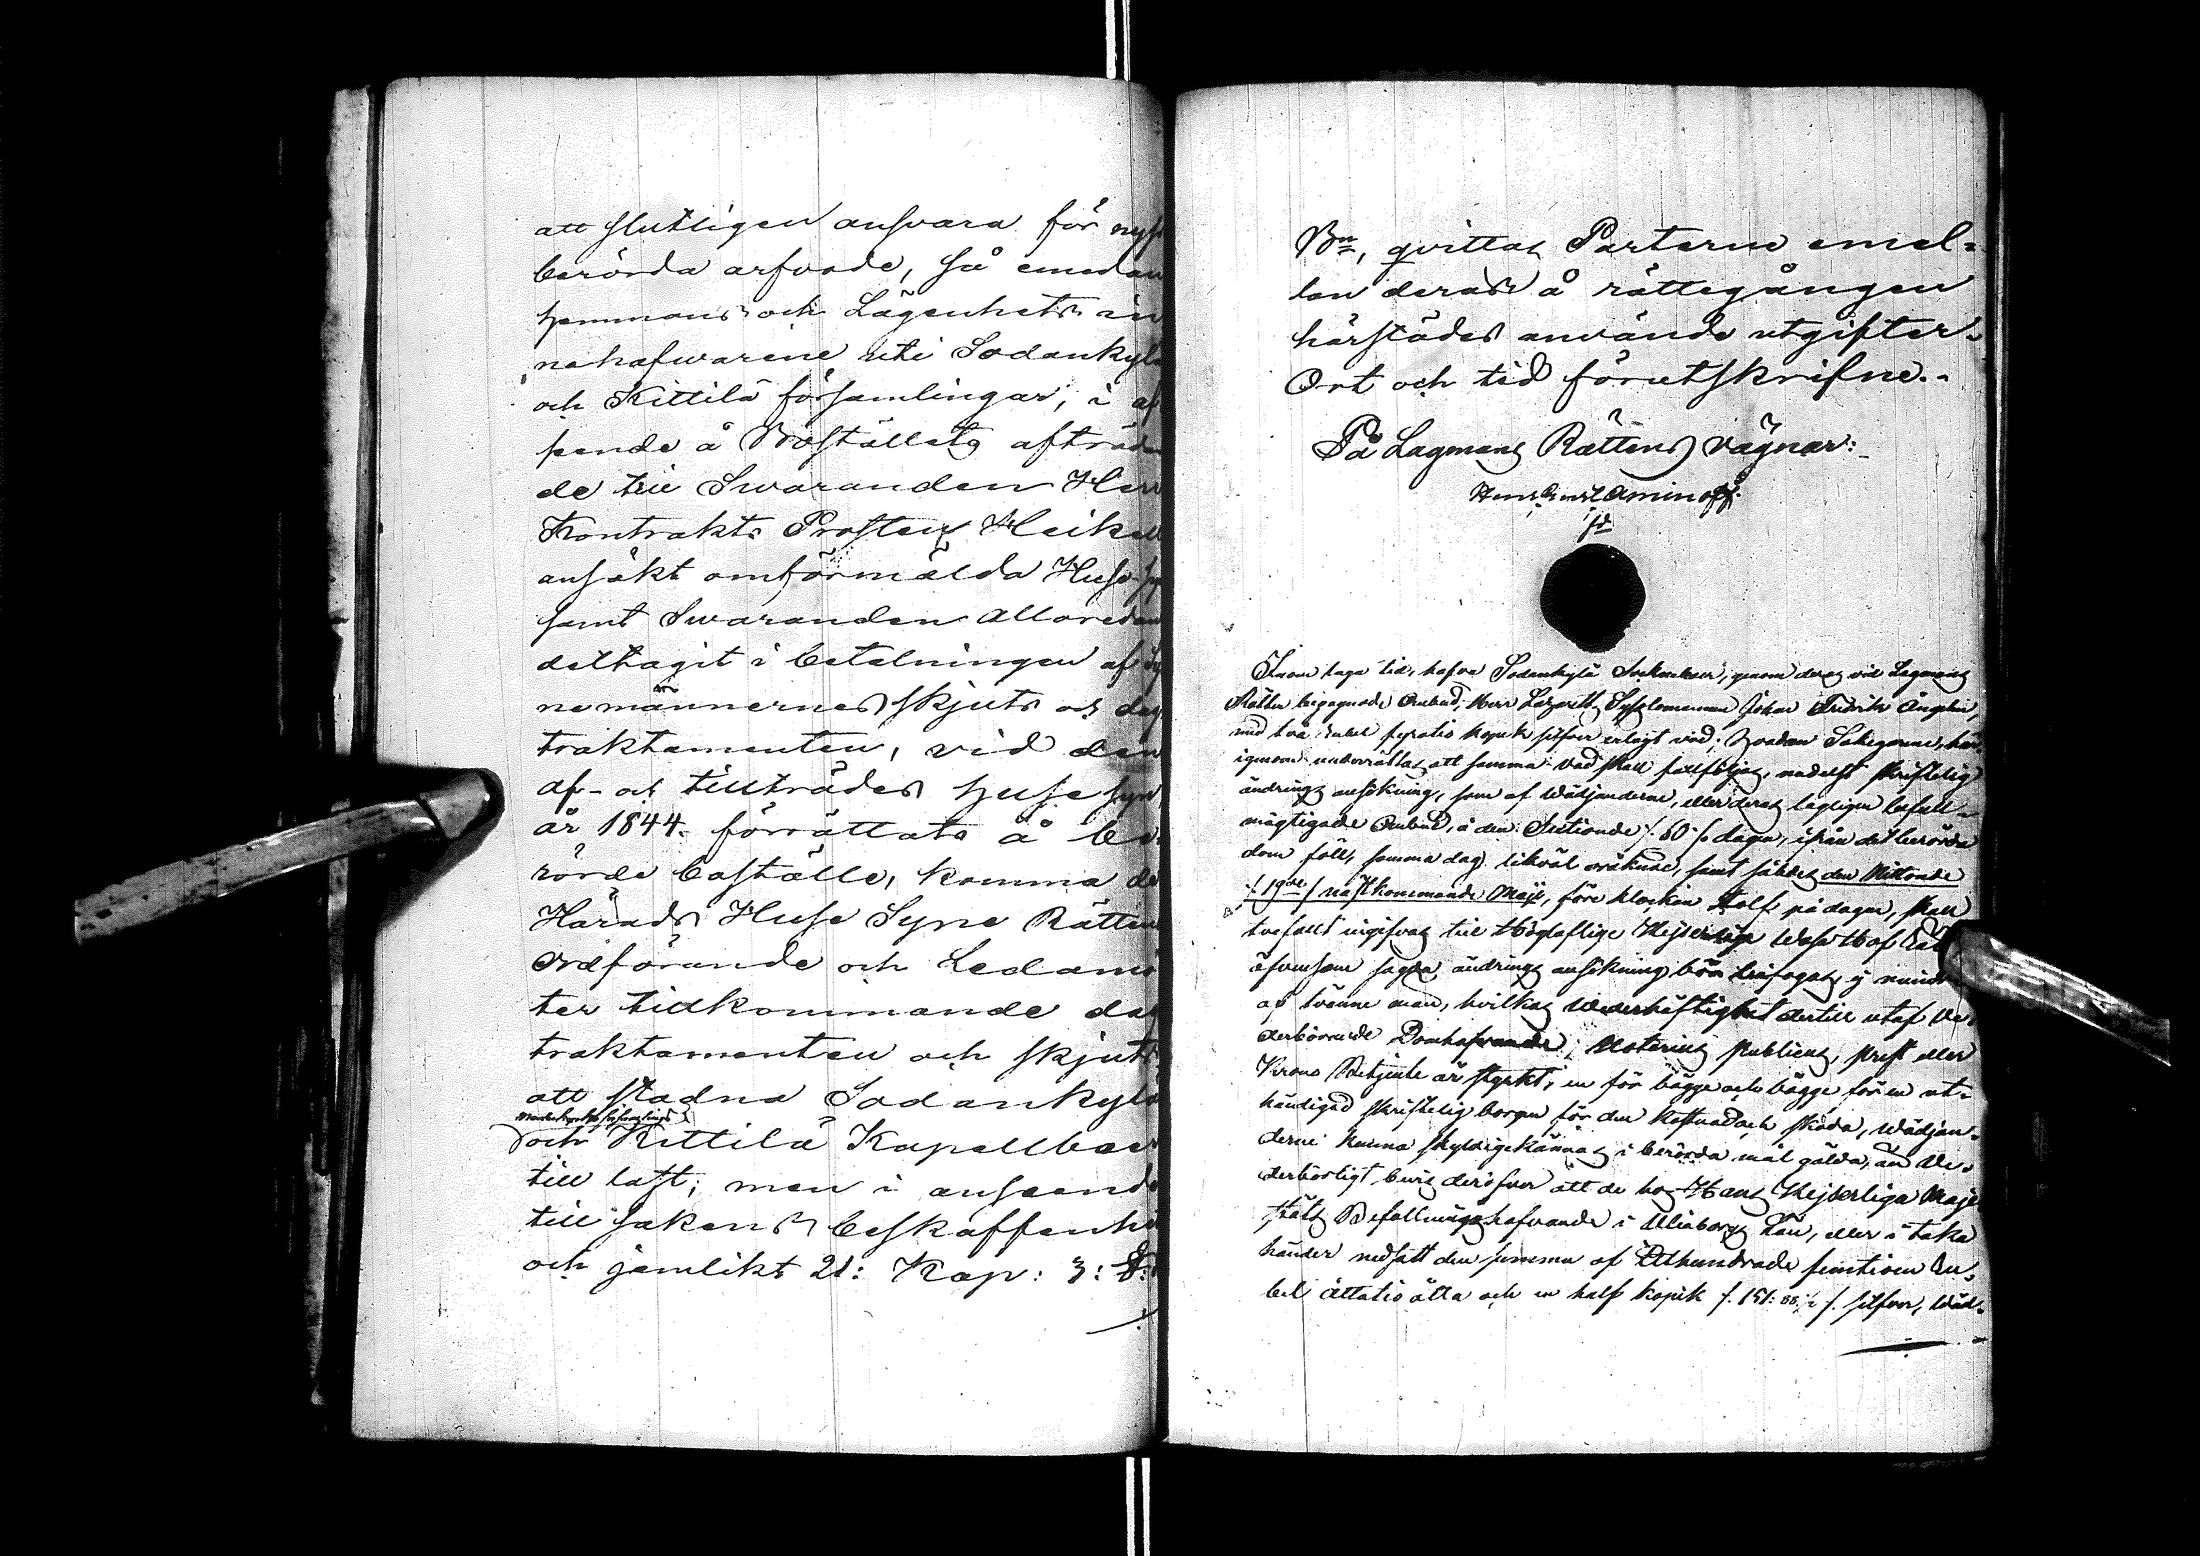 att slutligen ansvara för nyss
berörda arfvode, så emedan
hemmans och Lägenhets in
nehafwarene uti Sodankylä
och Kittilä församlingar, i af
seende å Boställets afträdan
de till Swaranden Herr
Kontrakts Prosten Heikel
ansökt omförmälda Husesyn
samt Swaranden alloredan
deltagit i betalningen af Sy
nemännernes skjuts och dag
traktamenten, vid den
af- och tillträdes husesyn
år 1844. förrättats å be-
rörde boställe, komma de
Härads Huse Syne Rättens
Ordförande och Ledamö
ter tillkommande dag
traktamenten och skjuts
att stadna Sodankylä
och Kittilä Kapellboer
till last; men i anseende
till sakens beskaffenhet
och jemlikt 21: Kap: 3: §:
Bn, qvittas Parterne emel-
lan deras å rättegången
härstädes använde utgifter.
Ort och tid förutskrifne.
På Lagmans Rättens vägnar:
Aminoff.
Inom laga tid, hafva Sodankylä Sockneboer, genom deras vid Lagmans
Rätten begagnade Ombud, Herr Lazaretts Sysslomannen Johan Fredrik Ångelin,
med två Rubel fyratio kopek silfver erlagt vad; hvadan Sakegarne, här-
igenom underrättas att samma vad skall fullföljas, medelst skriftelig
ändrings ansökning, som af Wädjanderne, eller deras lagligen befull-
mägtigade Ombud, å den Sextionde /. 60 /. dagen, ifrån det berörda
dom föll, samma dag likväl oräknad, samt således den Nittonde
/. 19de /. nästkommande Maji, före klockan Tolf på dagen, skall
tvefallt ingifvas till Höglaflige Kejserliga Wasa Hof Rätt
äfvensom sagda ändrings ansökning bör bifogas, ej mindre
af tvenne män, hvilkas Wederhäftighet dertill utaf We-
derbörande Domhafvande, Notarius Publicus, prest eller
Krono Betjente är styrkt, en för bägge och bägge för en ut-
händigad skriftelig borgen för den kostnad och skada, Wädjan-
derne kunna skyldige kännas i berörda mål gälda, än We-
derbörligt bevis deröfver att de hos Hans Kejserliga Maje
stäts Befallningshafvande i Uleåborgs Län, eller i taka
händer nedsatt den summa af Etthundrade femtioen Ru-
bel åttatio åtta och en half kopek /. 151: 88. 1/2 /. silfver, Wäd-